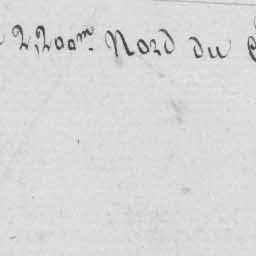 2,200m. Nord du